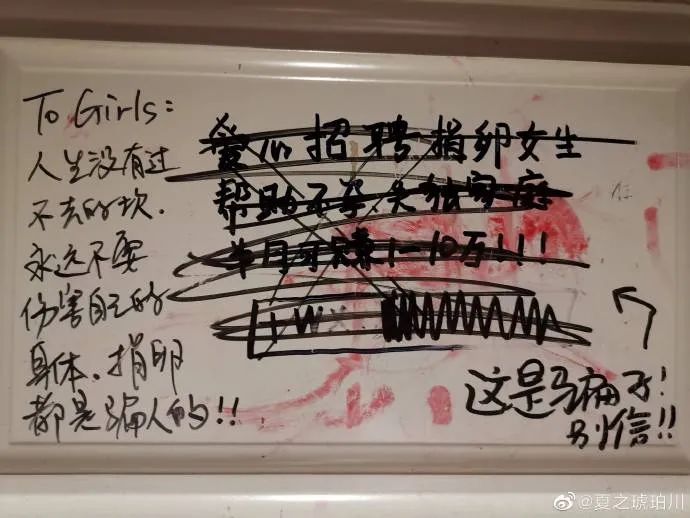 To Girls:
人生没有过
不去的坎.
永远不要
伤害自己的
身体、捐卵
都是骗人的!!
爱心招聘捐卵女生
帮助不孕失独家庭
单月可赚1-10万!!!
这是骗子!
别信!!
@夏之琥珀川